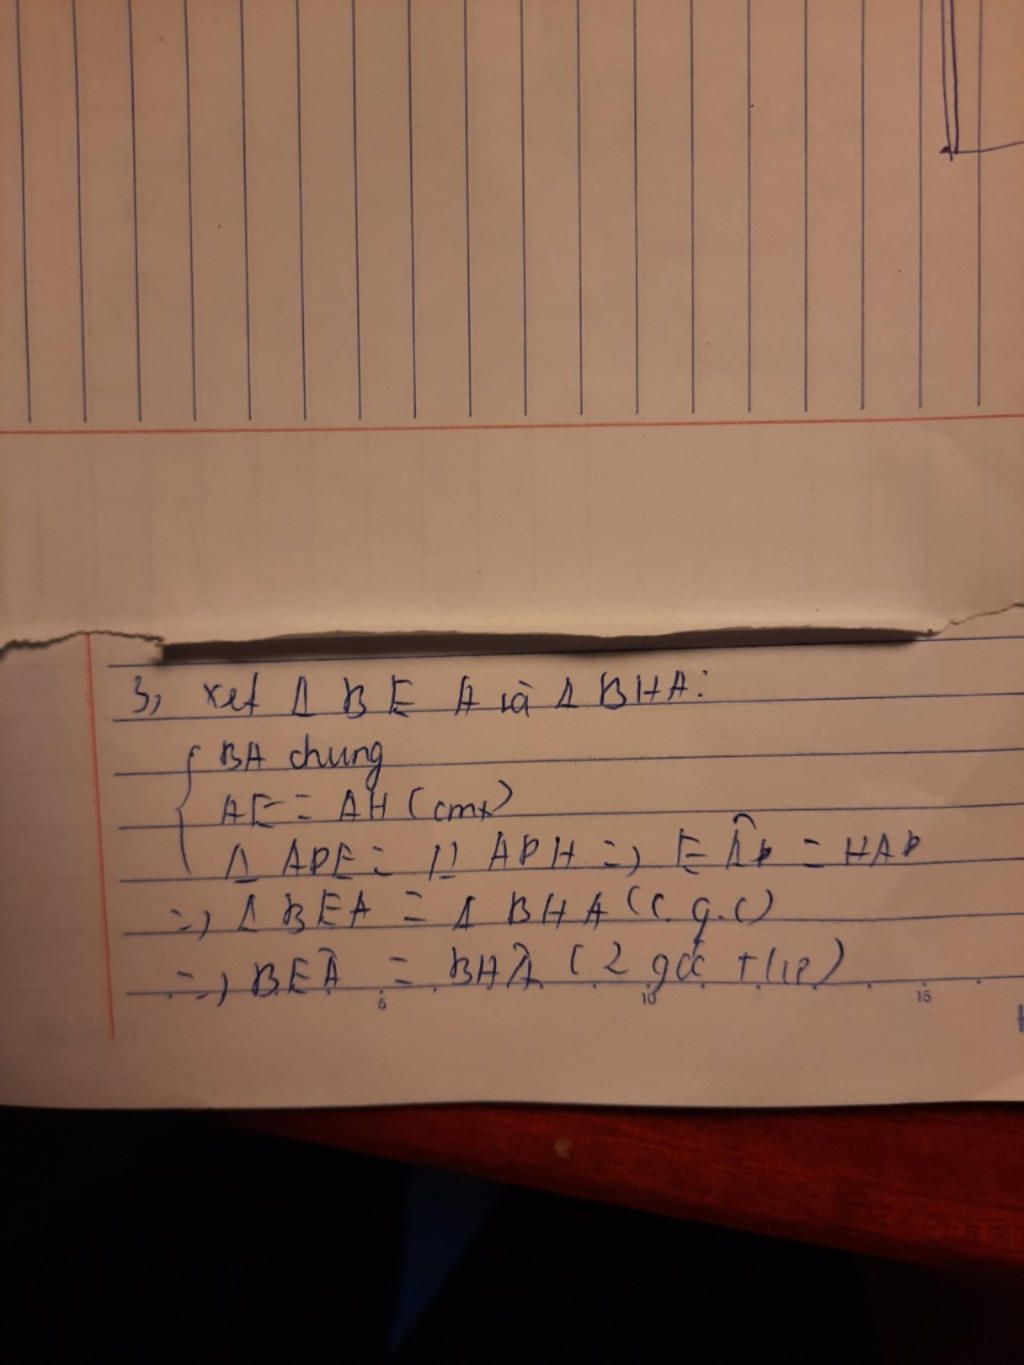 3, xét Δ BEA và Δ BHA:
BA chung
AE = AH (cmt)
Δ APE = Δ APH => EAP = HAP
=> Δ BEA = Δ BHA (c.g.c)
=> BEA = BHA (2 góc tứ)
5 10 15